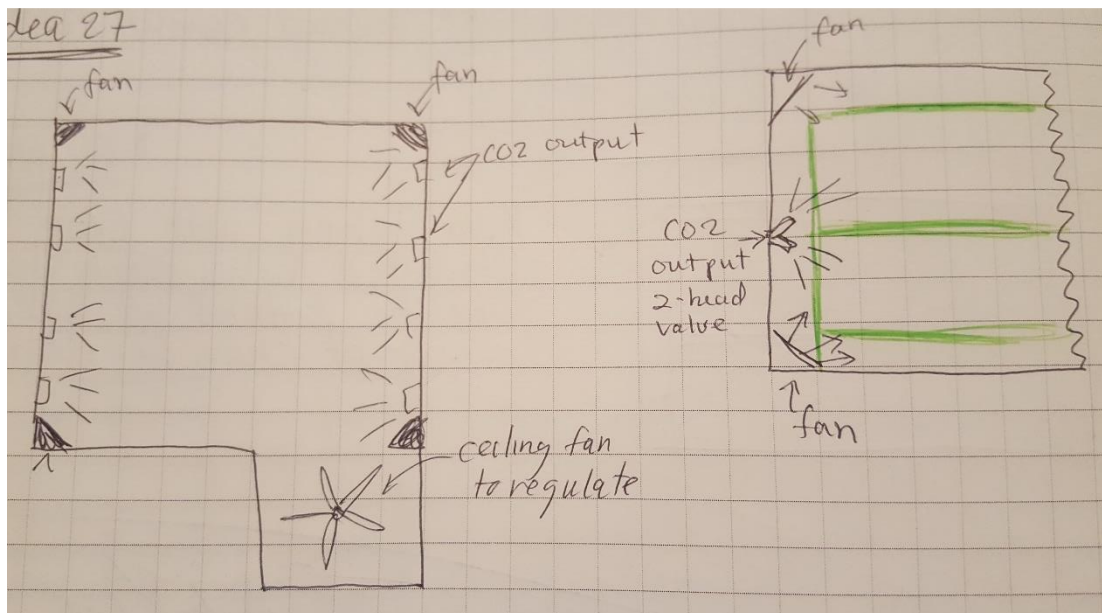 dea 27
fan
fan
CO2 output
ceiling fan
to regulate
fan
CO2
output
2-head
valve
fan